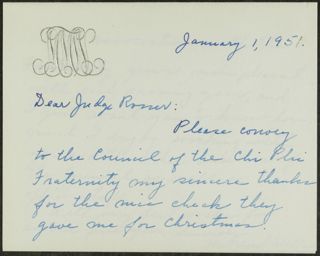 January 1, 1951.
Dear Judge Rosser:
Please convey
to the Council of the Chi Phi
Fraternity my sincere thanks
for the nice check they
gave me for Christmas.